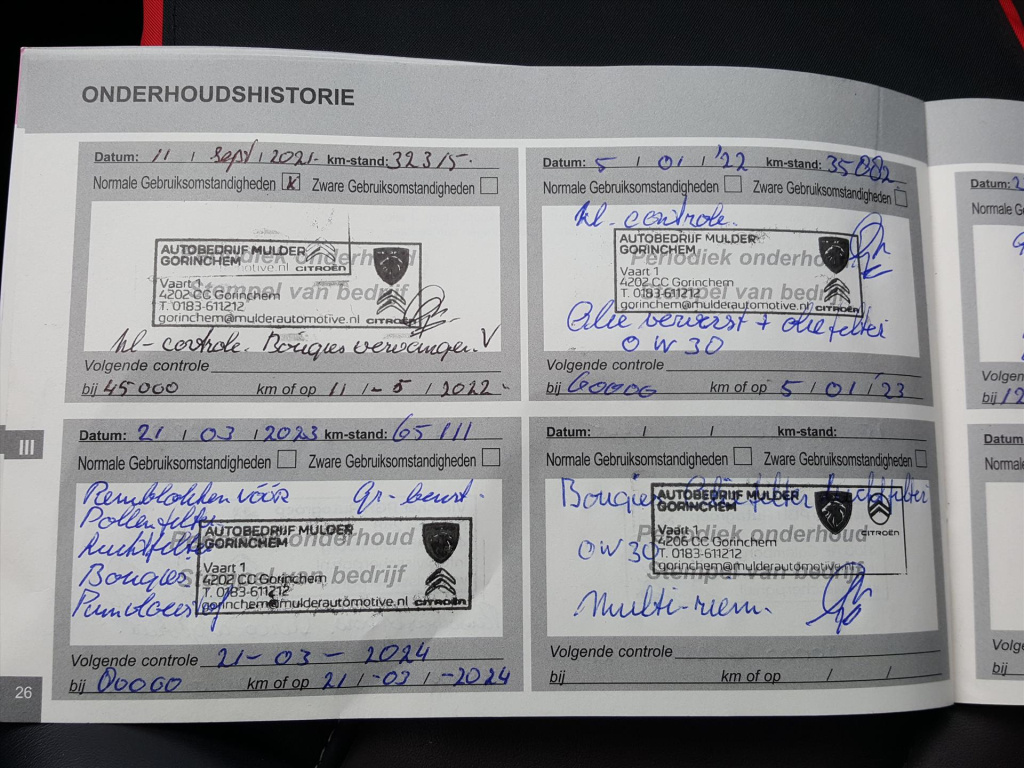 ONDERHOUDSHISTORIE
Datum: 11 / Sept / 2021 - km-stand: 32315 -
Normale Gebruiksomstandigheden x Zware Gebruiksomstandigheden
AUTOBEDRIJF MULDER
GORINCHEM
Periodiek onderhoud
Vaart 1
Stempel van bedrijf
4202 CC Gorinchem
T. 0183-611212
gorinchem@mulderautomotive.nl CITROËN
kl-controle. Bougies vervangen. V
Volgende controle
bij 45000 km of op 11 / - 5 / 2022 -
Datum: 5 / 01 / '22 km-stand: 35002
Normale Gebruiksomstandigheden Zware Gebruiksomstandigheden
kl-controle.
AUTOBEDRIJF MULDER
GORINCHEM
Periodiek onderhoud
Vaart 1
Stempel van bedrijf
4202 CC Gorinchem
T. 0183-611212
gorinchem@mulderautomotive.nl CITROËN
Olie ververst + oliefilter
0W30
Volgende controle
bij 60000 km of op 5 / 01 / '23
Datum: 21 / 03 / 2023 km-stand: 65111
Normale Gebruiksomstandigheden Zware Gebruiksomstandigheden
Remblokken vóór gr-beurt.
Pollenfilter
Luchtfilter
Bougies
AUTOBEDRIJF MULDER
GORINCHEM
Periodiek onderhoud
Vaart 1
Stempel van bedrijf
4202 CC Gorinchem
T. 0183-611212
gorinchem@mulderautomotive.nl CITROËN
Volgende controle 21-03-2024
bij 00000 km of op 21 / -03 / -2024
Datum: / / km-stand:
Normale Gebruiksomstandigheden Zware Gebruiksomstandigheden
Bougies Oliefilter Luchtfilter
AUTOBEDRIJF MULDER
GORINCHEM
CITROËN
Periodiek onderhoud
0W30
Vaart 1
4206 CC Gorinchem
T. 0183-611212
gorinchem@mulderautomotive.nl
Stempel van bedrijf
Multi-riem.
Volgende controle
bij km of op / /
III
26
Datum: 2
Normale Ge
Volgen
bij 12
Datum
Normal
Vol
bij